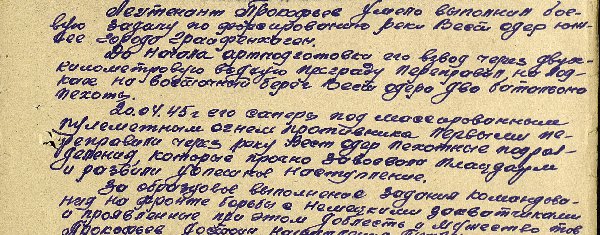 Лейтенант Прокофьев умело выполнил бое-
вую задачу по форсированию реки Вест Одер юж-
нее города Грайфенхаген.
До начала артподготовки его взвод через двух-
километровую водную преграду переправил на лод-
ках на восточный берег Вест Одера два батальона
пехоты.
20.04.45 г его саперы под массированным
пулеметным огнем противника первыми пе-
реправили через реку Вест Одер пехотные подраз-
деления, которые прочно завоевали плацдарм
и развили успешное наступление.
За образцовое выполнение задания командова-
ния на фронте борьбы с немецкими захватчиками
и проявленные при этом доблесть и мужество тов
Прокофьев достоин